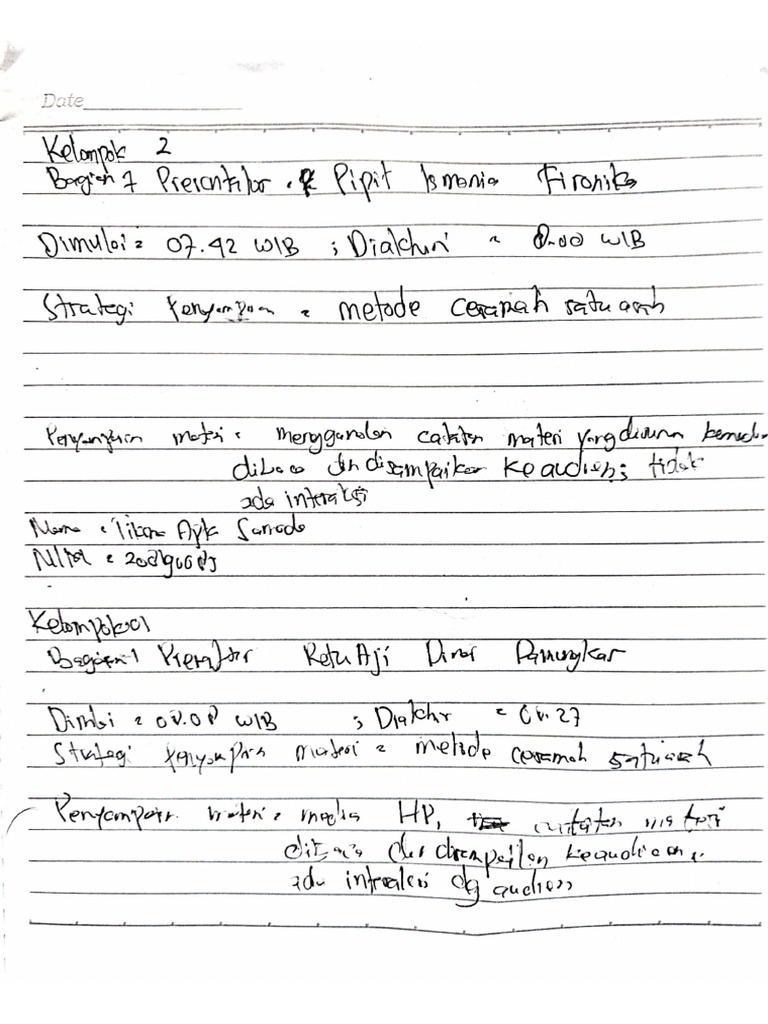 Date
Kelompok 2
Bagian 7 Presentator : Pipit Ismania Fironika
Dimulai = 07.42 WIB ; Diakhiri = 8.00 WIB
Strategi Penyampaian = metode ceramah satu arah
Penyampaian materi = menggunakan catatan materi yang disusun
dibaca dan disampaikan ke audiens; tidak
ada interaksi
Nama =
NIM =
Kelompok 01
Bagian 1 Aji Dinar Pamungkas
= 08.08 WIB ; Diakhir = 08.27
Strategi materi = metode ceramah satu arah
Penyampaian materi = media HP, catatan materi
dibaca dan disampaikan ke audiens,
ada interaksi dg audiens